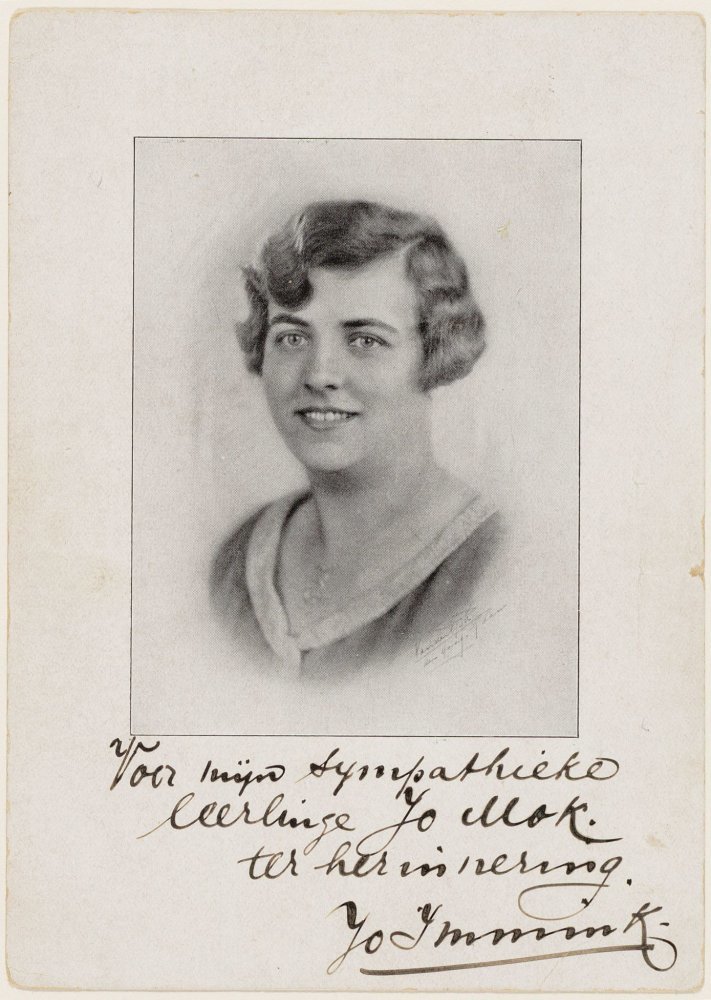 Voor mijn sympathieke
leerlinge Jo Mok.
ter herinnering.
Jo Immink.